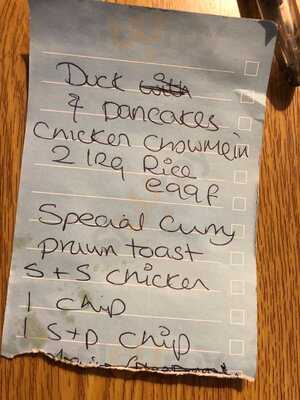 Duck with
& pancakes
Chicken Chowmein
2 lrg Rice
egg f
Special Curry
prawn toast
S + S chicken
1 chip
1 S+P chip